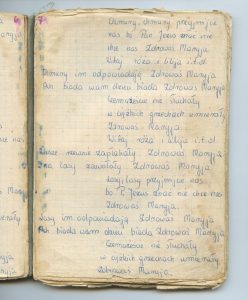 Chmury, chmury przyjmijcie
nas bo Pan Jezus znać nie
chce nas Zdrowaś Maryja
Witaj róża i lilija i.t.d.
Chmury im odpowiadają Zdrowaś Maryja
Ach biada wam dziwu biada Zdrowaś Maryja
Czemużeście nie słuchały
w ciężkich grzechach umierały
Zdrowaś Maryja.
Witaj róża i lilija i.t.d.
Dusze rzewnie zapłakały Zdrowaś Maryja
Na lasy zawołały Zdrowaś Maryja.
Lasy, lasy przyjmijcie nas
bo P. Jezus znać nie chce nas
Zdrowaś Maryja.
Lasy im odpowiadają Zdrowaś Maryja
Ach biada wam dziwu biada Zdrowaś Maryja
Czemużeście nie słuchały
w ciężkich grzechach umierały
Zdrowaś Maryja.